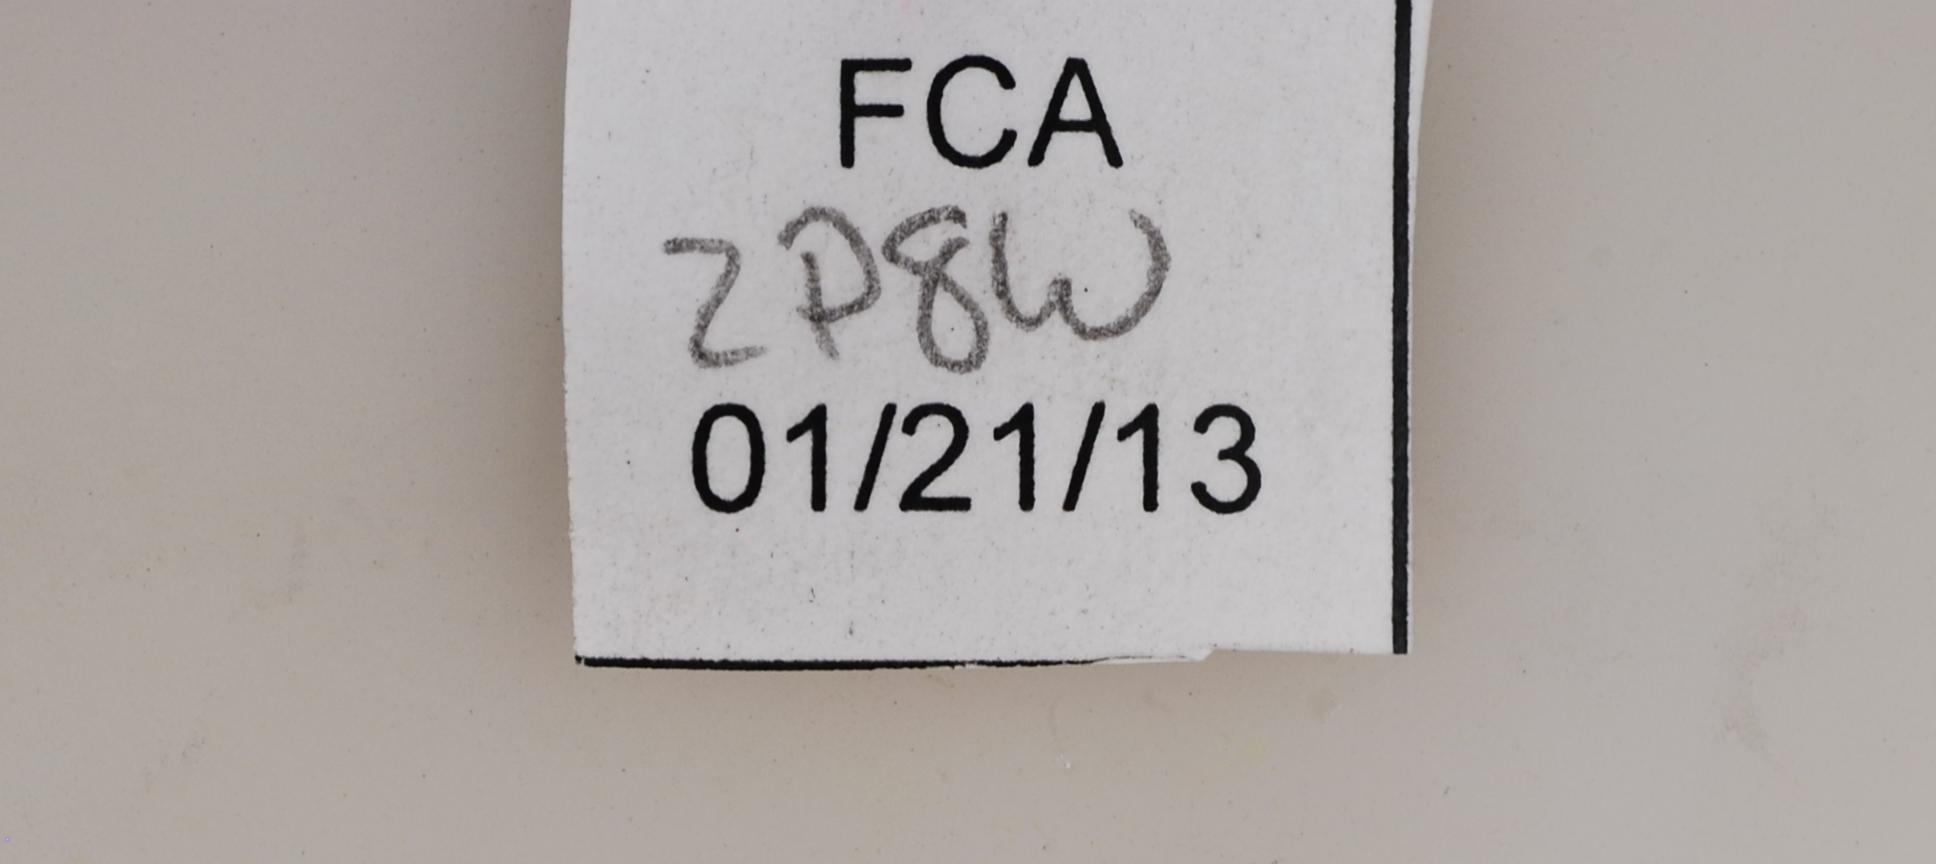 FCA
2P8W
01/21/13